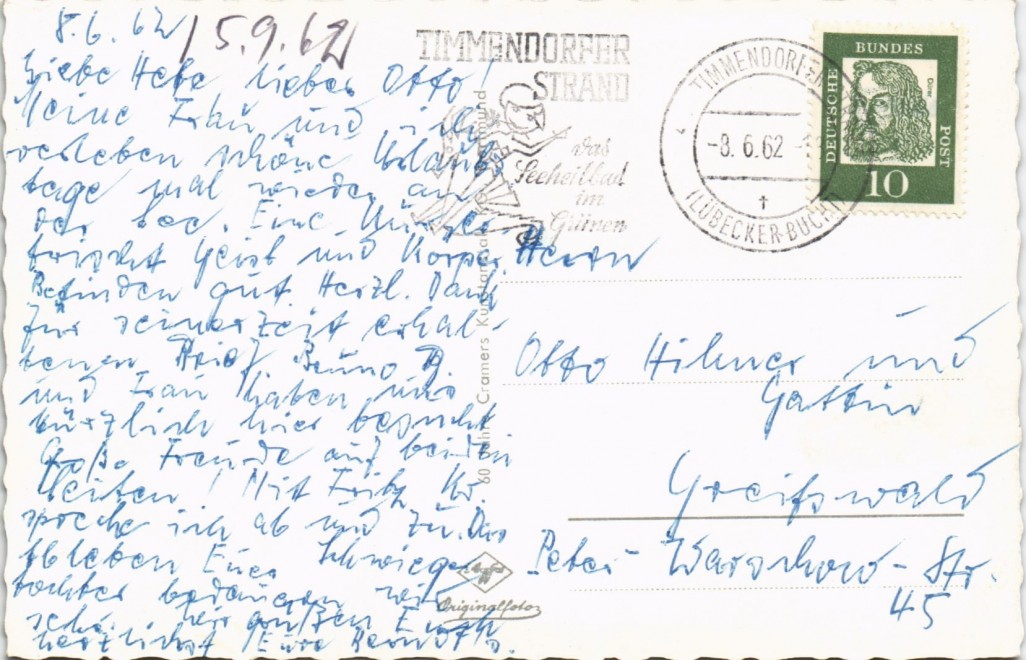 8.6.62
15.9.62
Liebe Hete lieber Otto!
Meine Frau und ich
verleben schöne Urlaubs
tage mal wieder an
der See. Eine
frischt Geist und Körper
Befinden gut. Herzl. Dank
für seinerzeit erhal-
tenen Brief. Bruno B.
und Frau haben uns
kürzlich hier besucht
Große Freude auf beiden
Seiten! Mit Fritz Kr.
spreche ich ab und zu. Das
Ableben Eurer Schwieger
tochter bedauern wir
sehr. Wir grüßen Euch
herzlichst Eure
TIMMENDORFER
STRAND
das
Seeheilbad
im
Grünen
TIMMENDORFER
-8.6.62
(LÜBECKER-BUCHT)
BUNDES
DEUTSCHE
POST
10
60 Jahre Cramers Kunstanstalt Dortmund
Originalfoto
Herrn
Otto Hilmer und
Gattin
Greifswald
Peter-Warschow-Str.
45